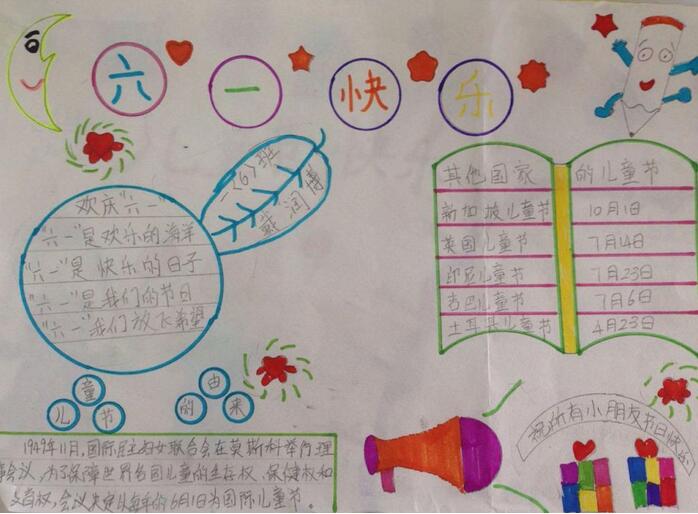 六一快乐
一〈6〉班
戴润博
欢庆“六一”
“六一”是欢乐的海洋
“六一”是快乐的日子
“六一”是我们的节日
“六一”我们放飞希望
其他国家的儿童节
新加坡儿童节 10月1日
英国儿童节 7月14日
印尼儿童节 7月23日
古巴儿童节 7月6日
土耳其儿童节 4月23日
儿童节的由来
1949年11月,国际民主妇女联合会在莫斯科举行理
事会议,为了保障世界各国儿童的生存权、保健权和
受育权,会议决定以每年的6月1日为国际儿童节。
祝所有小朋友节日快乐